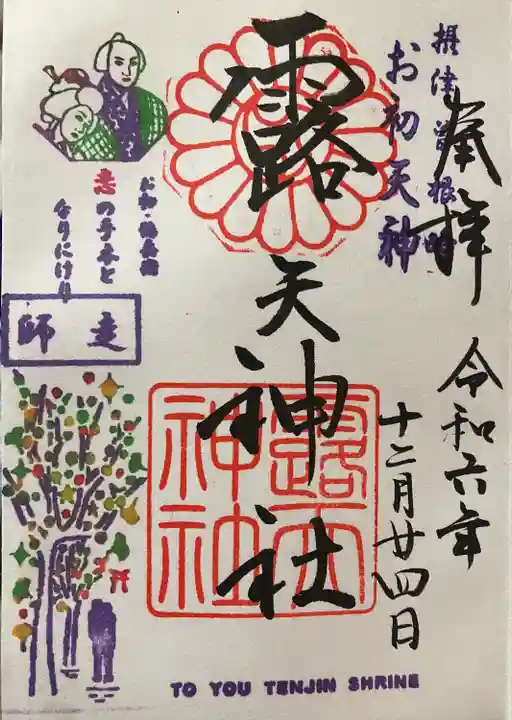 奉拝
摂津曽根崎
お初天神
令和六年
十二月廿四日
露天神社
露天神社
お初・徳兵衛
恋の手本と
なりにけり
師走
TO YOU TENJIN SHRINE